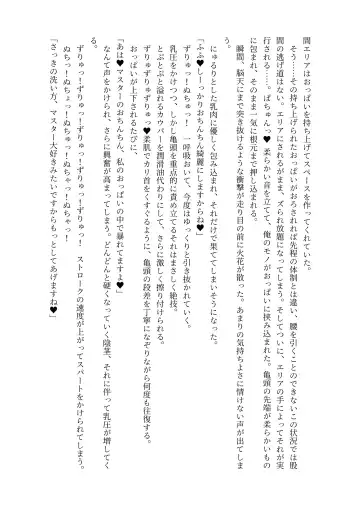 間エリアはおっぱいを持ち上げてスペースを作ってくれていた。
　そう……その持ち上げられたおっぱいがおろされれば先程の体制とは違い、腰を引くことのできないこの状況では股
間の逃げ道はない。エリアにされるがまま、ズられ放題になってしまう。そしてついに、エリアの手によってそれが実
行される……。ぱちゅんっ♥柔らかい音を立てて、俺のモノがおっぱいに挟み込まれた。亀頭の先端が柔らかいもの
に包まれ、そのまま一気に根元まで押し込まれる。
　瞬間、脳天にまで突き抜けるような衝撃が走り目の前に火花が散った。あまりの気持ちよさに情けない声が出てしま
う。
　にゅるりとした乳肉に優しく包み込まれ、それだけで果ててしまいそうになった。
「ふふ♥しーっかりおちんちん綺麗にしますからね♥」
　ずりゅっ！ぬちゅっ！　一呼吸おいて、今度はゆっくりと引き抜かれていく。
　乳圧をかけつつ、しかし亀頭を重点的に責め立てるそれはまさしく絶技。
　とぷとぷと溢れるカウパーを潤滑油代わりにして、さらに激しく擦り付けられる。
　ずりゅずりゅずりゅ♥柔肌でカリ首をくすぐるように、亀頭の段差を丁寧になぞりながら何度も往復する。
　おっぱいが上下されるたびに、
「あは♥マスターのおちんちん、私のおっぱいの中で暴れてますよ♥」
　なんて声をかけられ、さらに興奮が高まってしまう。どんどんと硬くなっていく陰茎、それに伴って乳圧が増してく
る。
　ずりゅっ！ずりゅっ！ずりゅっ！ずりゅっ！　ストロークの速度が上がってスパートをかけられてしまう。
　ぬちっ！ぬちょっ！ぬちゅっ！ぬちゃっ！
「さっきの洗い方、マスター大好きみたいですからもっとしてあげますね♥」